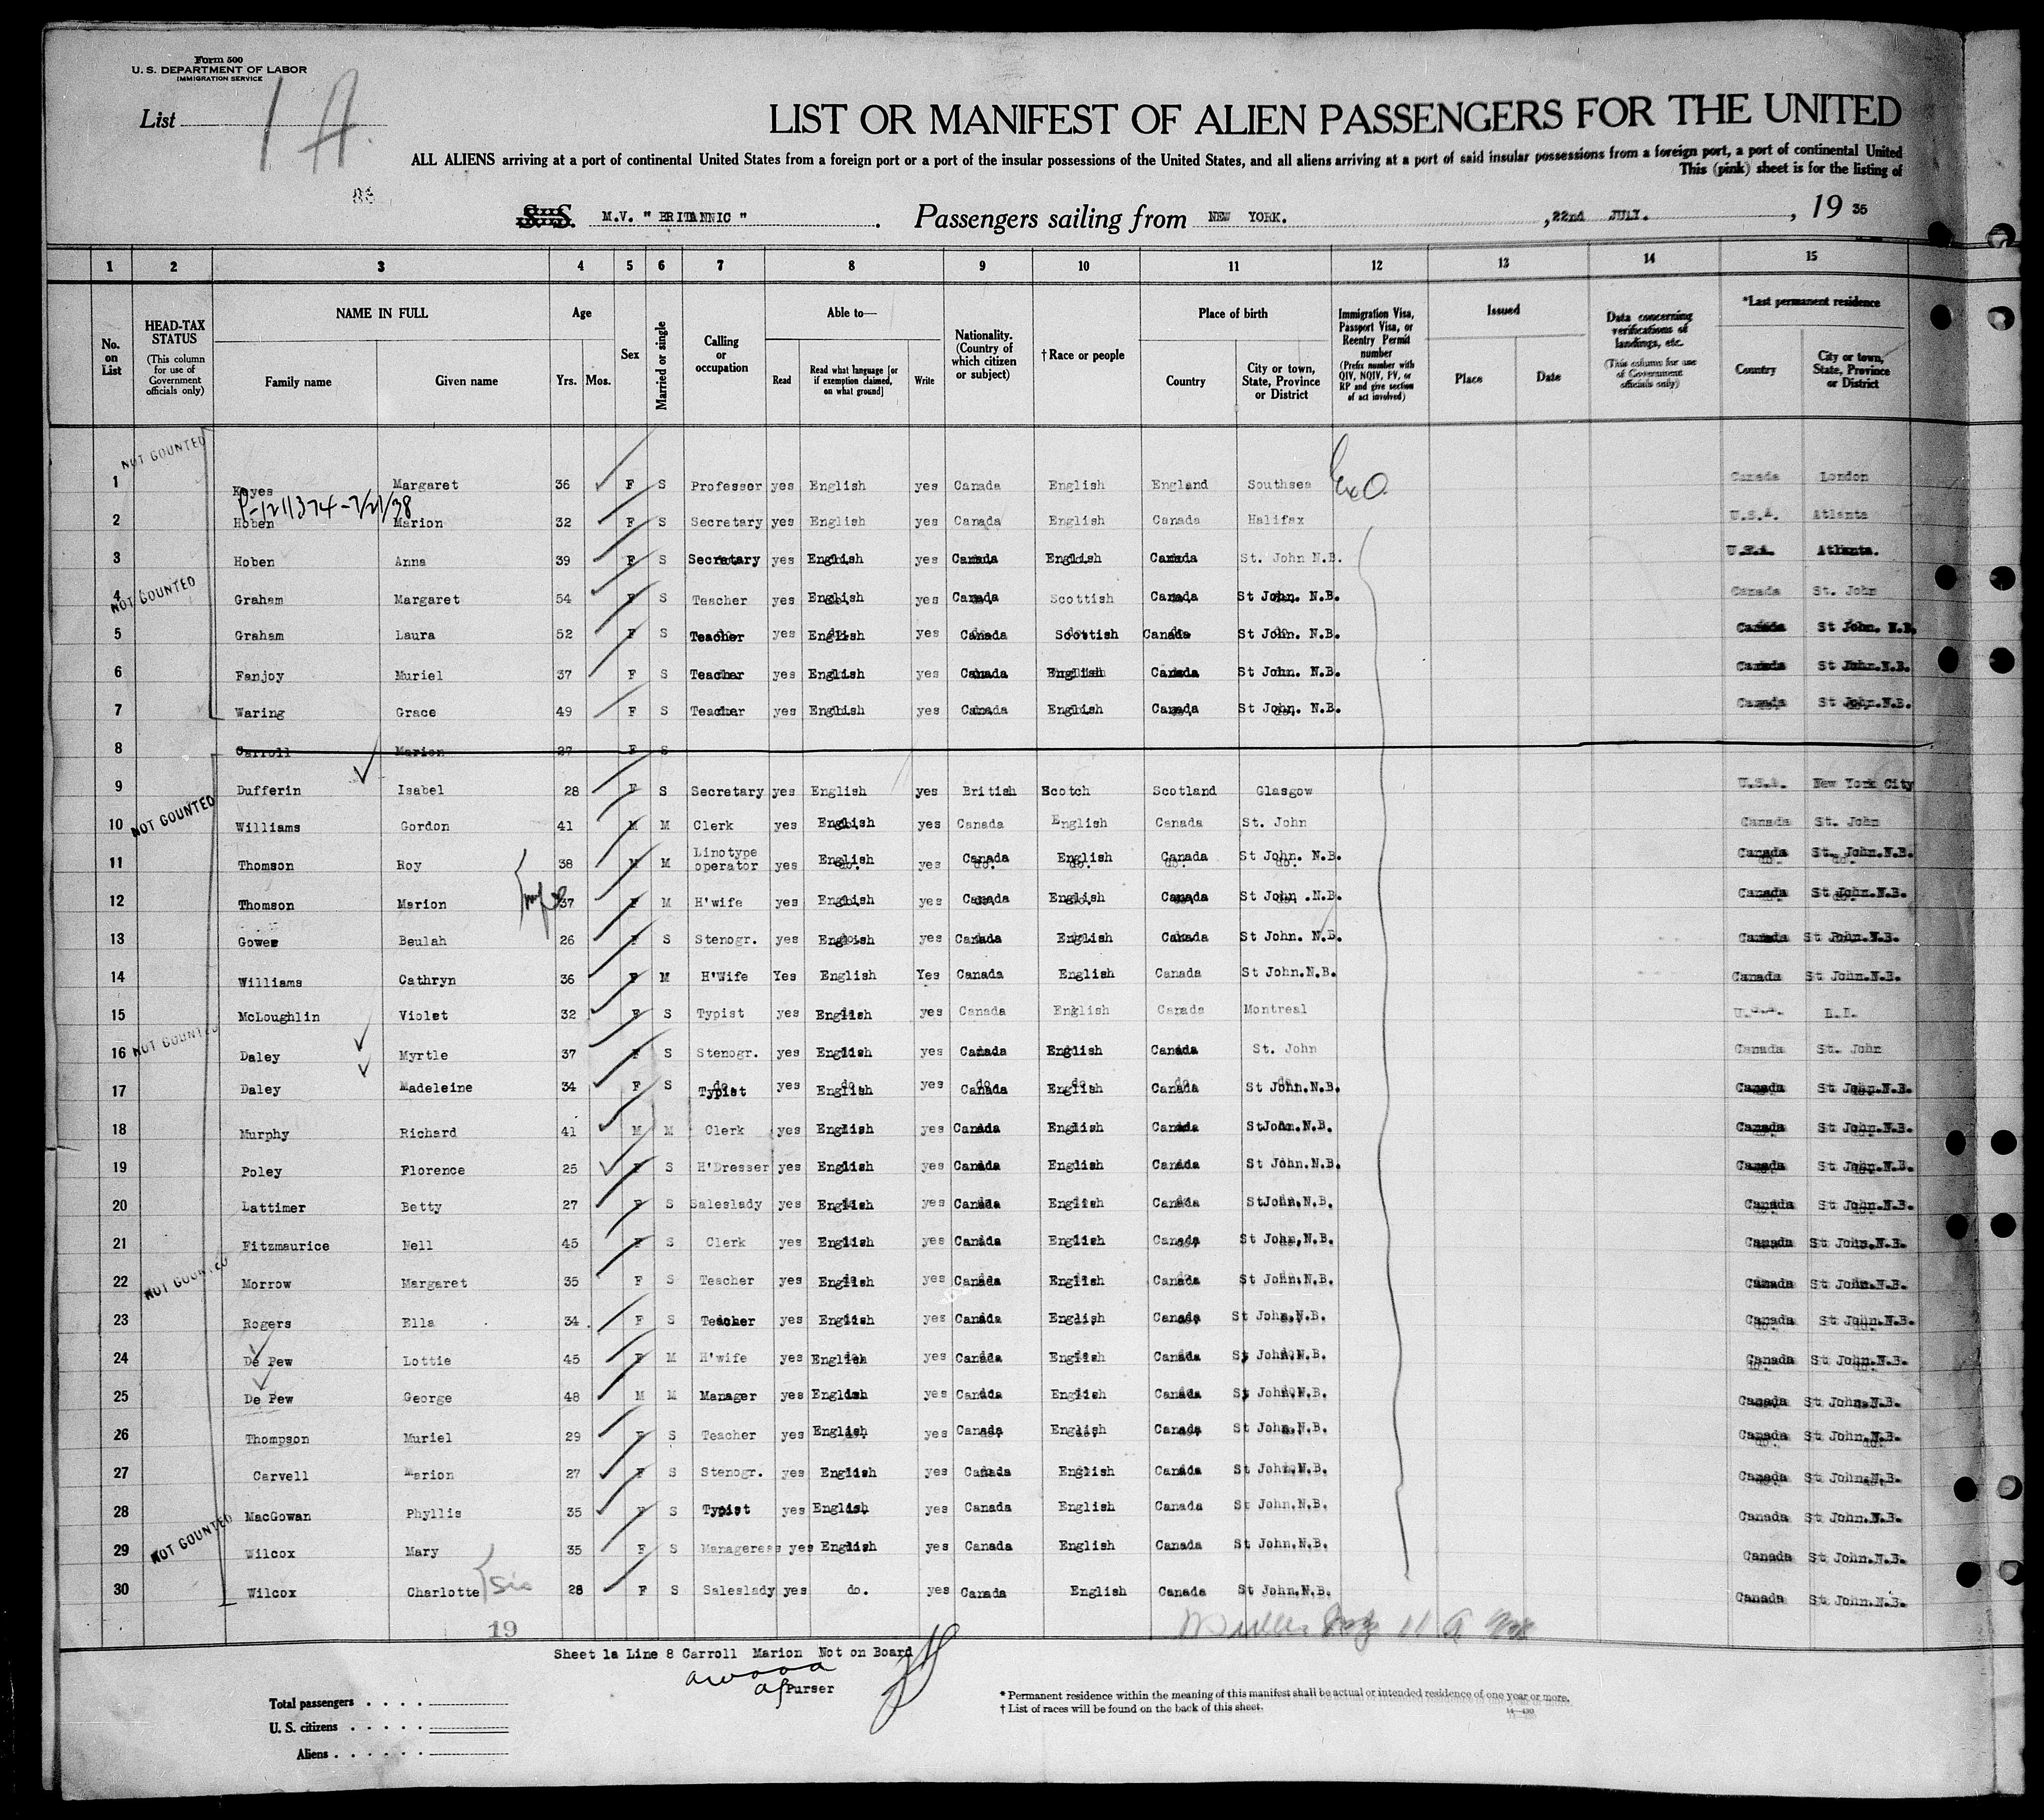 Form 500
U. S. DEPARTMENT OF LABOR
IMMIGRATION SERVICE
List 1 A.
LIST OR MANIFEST OF ALIEN PASSENGERS FOR THE UNITED
ALL ALIENS arriving at a port of continental United States from a foreign port or a port of the insular possessions of the United States, and all aliens arriving at a port of said insular possessions from a foreign port, a port of continental United
This (pink) sheet is for the listing of
S. S. M.V. " BRITANNIC " . Passengers sailing from NEW YORK. , 22nd JULY. , 19 35
1 2 3 4 5 6 7 8 9 10 11 12 13 14 15
No. on List
HEAD-TAX STATUS (This column for use of Government officials only)
NAME IN FULL
Family name Given name
Age
Yrs. Mos.
Sex
Married or single
Calling or occupation
Able to—
Read Read what language [or if exemption claimed, on what ground] Write
Nationality. (Country of which citizen or subject)
†Race or people
Place of birth
Country City or town, State, Province or District
Immigration Visa, Passport Visa, or Reentry Permit number (Prefix number with QIV, NQIV, PV, or RP and give section of act involved)
Issued
Place Date
Data concerning verifications of landings, etc. (This column for use of Government officials only)
*Last permanent residence
Country City or town, State, Province or District
NOT COUNTED
1 Keyes Margaret 36 F S Professor yes English yes Canada English England Southsea Canada London
P-1211374-7/21/38
2 Hoben Marion 32 F S Secretary yes English yes Canada English Canada Halifax U.S.A. Atlanta
3 Hoben Anna 39 F S Secretary yes English yes Canada English Canada St. John N.B. U.S.A. Atlanta.
NOT COUNTED
4 Graham Margaret 54 F S Teacher yes English yes Canada Scottish Canada St John. N.B. Canada St. John
5 Graham Laura 52 F S Teacher yes English yes Canada Scottish Canada St John. N.B. Canada St John. N.B.
6 Fanjoy Muriel 37 F S Teacher yes English yes Canada English Canada St John. N.B. Canada St John.N.B.
7 Waring Grace 49 F S Teacher yes English yes Canada English Canada St John. N.B. Canada St John.N.B.
8 Carroll Marion 27 F S
9 Dufferin Isabel 28 F S Secretary yes English yes British Scotch Scotland Glasgow U.S.A. New York City
NOT COUNTED
10 Williams Gordon 41 M M Clerk yes English yes Canada English Canada St. John Canada St. John
11 Thomson Roy 38 M M Linotype operator yes English yes Canada English Canada St John. N.B. Canada St. John.N.B.
12 Thomson Marion 37 F M H'wife yes English yes Canada English Canada St John .N.B. Canada St John.N.B.
13 Gowee Beulah 26 F S Stenogr. yes English yes Canada English Canada St John. N.B. Canada St John.N.B.
14 Williams Cathryn 36 F M H'Wife Yes English Yes Canada English Canada St John.N.B. Canada St John.N.B.
15 McLoughlin Violet 32 F S Typist yes English yes Canada English Canada Montreal U.S.A. L.I.
NOT COUNTED
16 Daley Myrtle 37 F S Stenogr. yes English yes Canada English Canada St. John Canada St. John
17 Daley Madeleine 34 F S Typist yes English yes Canada English Canada St John.N.B. Canada St John.N.B.
18 Murphy Richard 41 M M Clerk yes English yes Canada English Canada StJohn.N.B. Canada St John.N.B.
19 Poley Florence 25 F S H'Dresser yes English yes Canada English Canada St John.N.B. Canada St John.N.B.
20 Lattimer Betty 27 F S Saleslady yes English yes Canada English Canada StJohn.N.B. Canada St John.N.B.
21 Fitzmaurice Nell 45 F S Clerk yes English yes Canada English Canada St John,N.B. Canada St John.N.B.
NOT COUNTED
22 Morrow Margaret 35 F S Teacher yes English yes Canada English Canada St John.N.B. Canada St John.N.B.
23 Rogers Ella 34 F S Teacher yes English yes Canada English Canada St John.N.B. Canada St John.N.B.
24 De Pew Lottie 45 F M H'wife yes English yes Canada English Canada St John.N.B. Canada St John.N.B.
25 De Pew George 48 M M Manager yes English yes Canada English Canada St John.N.B. Canada St John.N.B.
26 Thompson Muriel 29 F S Teacher yes English yes Canada English Canada St John.N.B. Canada St John.N.B.
27 Carvell Marion 27 F S Stenogr. yes English yes Canada English Canada St John.N.B. Canada St John.N.B.
28 MacGowan Phyllis 35 F S Typist yes English yes Canada English Canada St John.N.B. Canada St John.N.B.
NOT COUNTED
29 Wilcox Mary 35 F S Manageress yes English yes Canada English Canada St John.N.B. Canada St John.N.B.
30 Wilcox Charlotte sis 28 F S Saleslady yes do. yes Canada English Canada St John.N.B. Canada St John.N.B.
19
Sheet 1a Line 8 Carroll Marion Not on Board
Purser
Total passengers
U. S. citizens
Aliens
* Permanent residence within the meaning of this manifest shall be actual or intended residence of one year or more.
† List of races will be found on the back of this sheet.
14—430